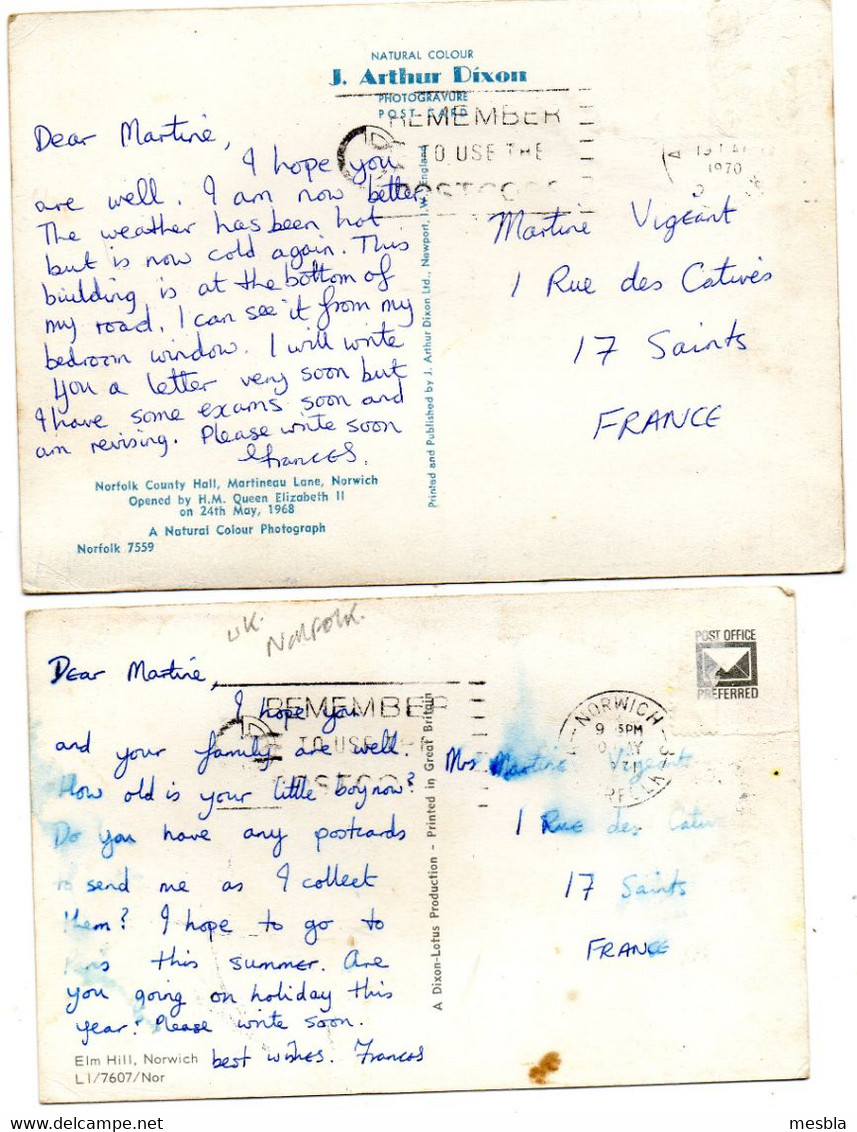 NATURAL COLOUR
J. Arthur Dixon
PHOTOGRAVURE
POST CARD
REMEMBER
TO USE THE
POSTCODE
1970
Dear Martine,
I hope you
are well. I am now better.
The weather has been hot
but is now cold again. This
biulding is at the bottom of
my road. I can see it from my
bedroom window. I will write
you a letter very soon but
I have some exams soon and
am revising. Please write soon
Frances.
Norfolk County Hall, Martineau Lane, Norwich
Opened by H.M. Queen Elizabeth II
on 24th May, 1968
A Natural Colour Photograph
Norfolk 7559
Printed and Published by J. Arthur Dixon Ltd., Newport, I.W., England
Martine Vigeant
1 Rue des Cativés
17 Saints
FRANCE
UK.
Norfolk.
Dear Martine,
REMEMBER
TO USE THE
I hope you
and your family are well.
How old is your little boy now?
Do you have any postcards
to send me as I collect
them? I hope to go to
Paris this summer. Are
you going on holiday this
year? Please write soon.
best wishes. Frances
Elm Hill, Norwich
L1/7607/Nor
A Dixon-Lotus Production - Printed in Great Britain
POST OFFICE
PREFERRED
NORWICH
9 PM
Mrs Martine Vigeant
1 Rue des
17 Saints
FRANCE
mesbla